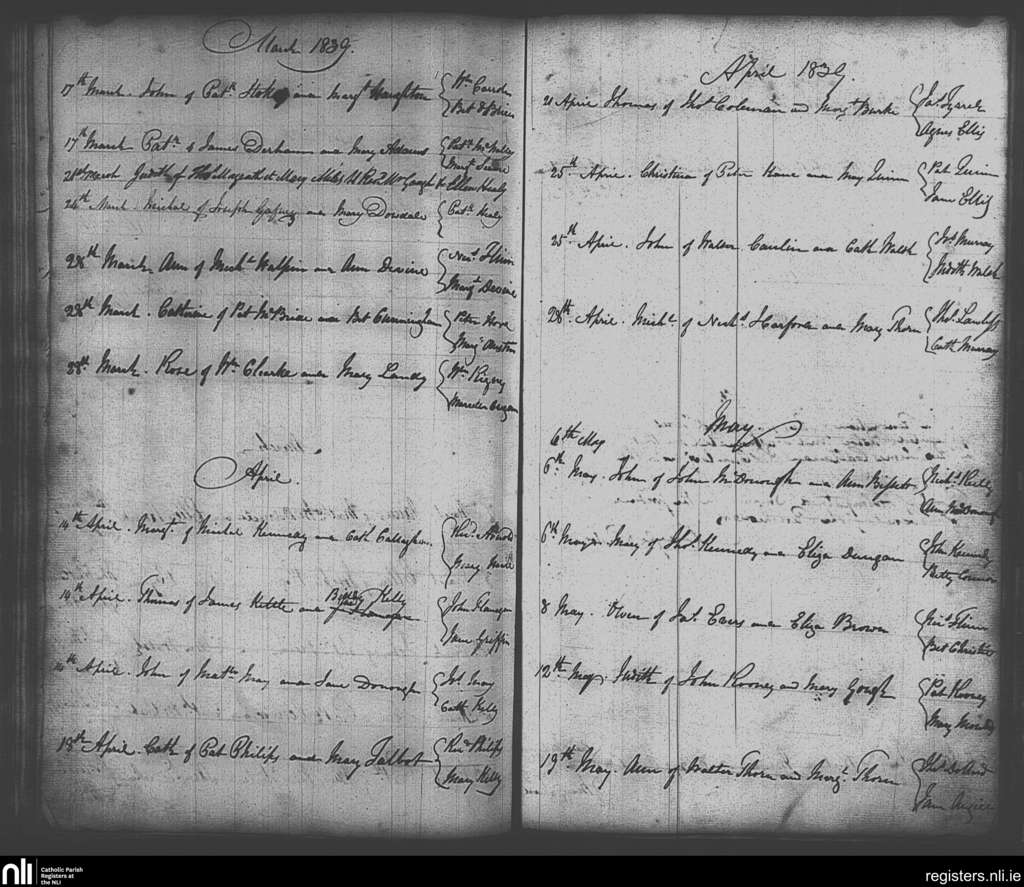 March 1839.
17th March. John of Patk. and Margt Naughton
Wm
Bet O'Brien
17th March Patk of James Derham and Mary Adams
Patk McNally
21st March Judith of Thos Magrath et Mary Miles Revd McGough Ellen Healy
24th March Michal of Joseph Gafney and Mary Dowdale
Patk Healy
28th March Ann of Michl Halpin and Ann Devine
Nics Flinn
Margt Devine
28th March. Cathrine of Pat McBride and Bet Cunningham
Peter Hore
Marg Austin
28th March. Rose of Wm Clearke and Mary Landy
Wm Rigny
April.
14th April. Margt. of Michal Kennedy and Cath Callaghan.
Richd. Arnold
Mary
14th April. Thomas of James Kettle and Biddy Kelly
John Flanagan
Jane Griffin
14th April. John of Matth May and Jane Donough
Jos. May
Cath Kelly
18th April. Cath of Pat Philips and Mary Talbot
Richd Philips
Mary Kelly
April 1839.
21 April Thomas of Thos Coleman and Margt Burke
Jas Tyrrell
Agnes Ellis
25th April. Christina of Peter Kane and Mary Quinn
Pat Quinn
Jane Ellis
25th April. John of Walter Carolin and Cath Walsh
Jos Murray
Judith Walsh
28th. April. Michl. of Nichs Harford and Mary Thorn
Thos Cunliff
Cath Murray
May.
6th May
6th. May. John of John McDonough and Ann Bissett
Nichs Reilly
Ann McDonough
6th May. Mary of Thos. Kennedy and Eliza Dungan
John Kennedy
Betty Connor
8 May. Owen of Jas. Eavers and Eliza Brown
Nics Flinn
Bet Christie
12th. May. Judith of John Rooney and Mary Gough
Pat Rooney
Mary
19th. May. Ann of Walter Thorn and Margt. Thorn
Thos
Jane
nli
Catholic Parish
Registers at
the NLI
registers.nli.ie